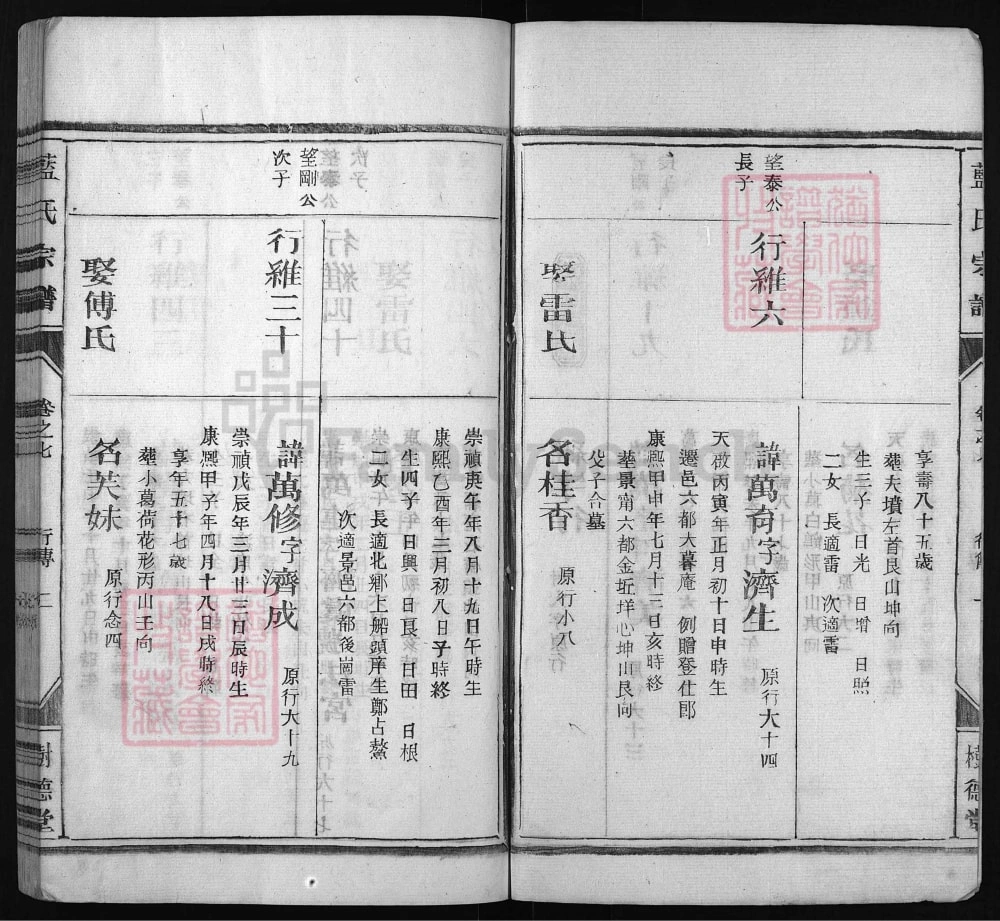 藍氏宗譜
樹德堂
享壽八十五歲
塟夫墳左首艮山坤向
生三子 日光 日增 日照
二女 長適雷 次適雷
望泰公
長子
行維六
諱萬育字濟生 原行大十四
天啟丙寅年正月初十日申時生
遷邑六都大暮庵 例贈登仕郎
康熙甲申年七月十二日亥時終
塟景甯六都金坵垟心坤山艮向
父子合墓
娶雷氏
名桂香 原行小八
崇禎庚午年八月十九日午時生
康熙乙酉年三月初八日子時終
生四子 日興 日長 日田 日根
二女 長適北鄉上船頭庠生鄭占鰲
次適景邑六都後崗雷
望剛公
次子
行維三十
諱萬修字濟成 原行大十九
崇禎戊辰年三月廿三日辰時生
康熙甲子年四月十八日戌時終
享年五十七歲
塟小葛荷花形丙山壬向
娶傅氏
名芙妹 原行念四
藍氏宗譜
卷之七
行傳
二
樹德堂